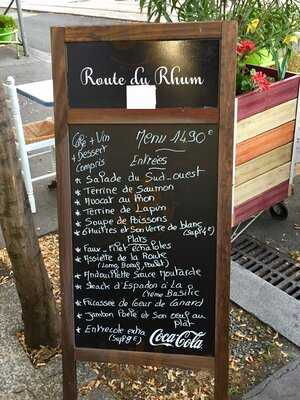 Route du Rhum
Café + Vin
+ Dessert
Compris
Menu 14.90€
Entrées
* Salade du Sud-ouest
* Terrine de Saumon
* Avocat au Thon
* Terrine de Lapin
* Soupe de Poissons
* 6 Huitres et Son Verre de blanc
(Sup 4€)
Plats
* Faux-filet échalotes
* Assiette de la Route
(Lamo, Boeuf, Poulet)
* Andouillette Sauce Moutarde
* Steack d'Espadon à La
Crème Basilic
* Fricassée de Coeur de Canard
* Jambon Poêlé et Son oeuf au
Plat
* Entrecote extra
(Sup 8€)
Coca-Cola